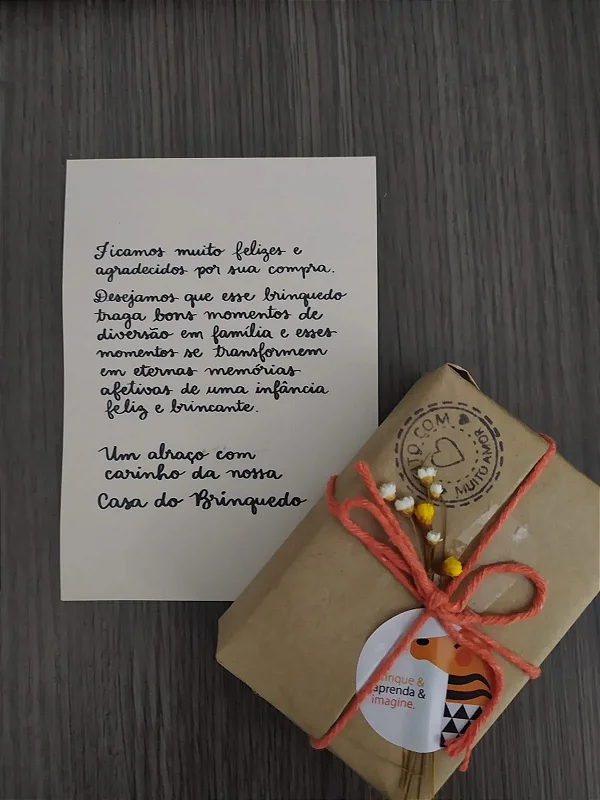 Ficamos muito felizes e
agradecidos por sua compra.
Desejamos que esse brinquedo
traga bons momentos de
diversão em família e esses
momentos se transformem
em eternas memórias
afetivas de uma infância
feliz e brincante.
Um abraço com
carinho da nossa
Casa do Brinquedo
COM
MUITO AMOR
&
aprenda &
imagine.